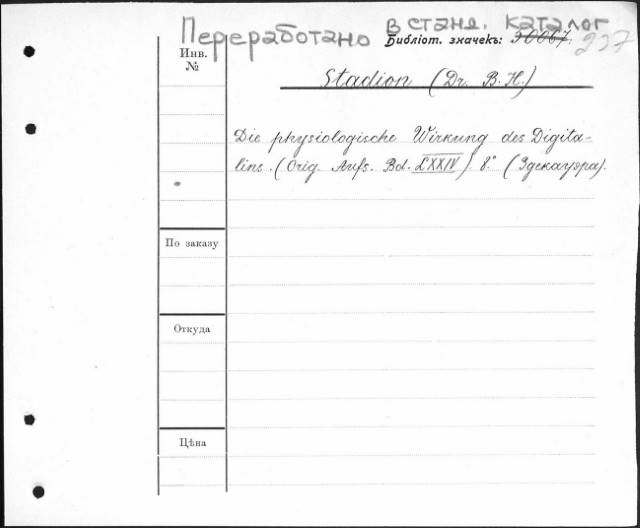 Переработано в станд. каталог
Инв. №
Библіот. значекъ: 30067. 237
Stadion (Dr. B. H.)
Die physiologische Wirkung des Digita-
lins. (Orig. Aufs. Bd. LXXIV). 8.° (Здекауэра).
По заказу
Откуда
Цѣна